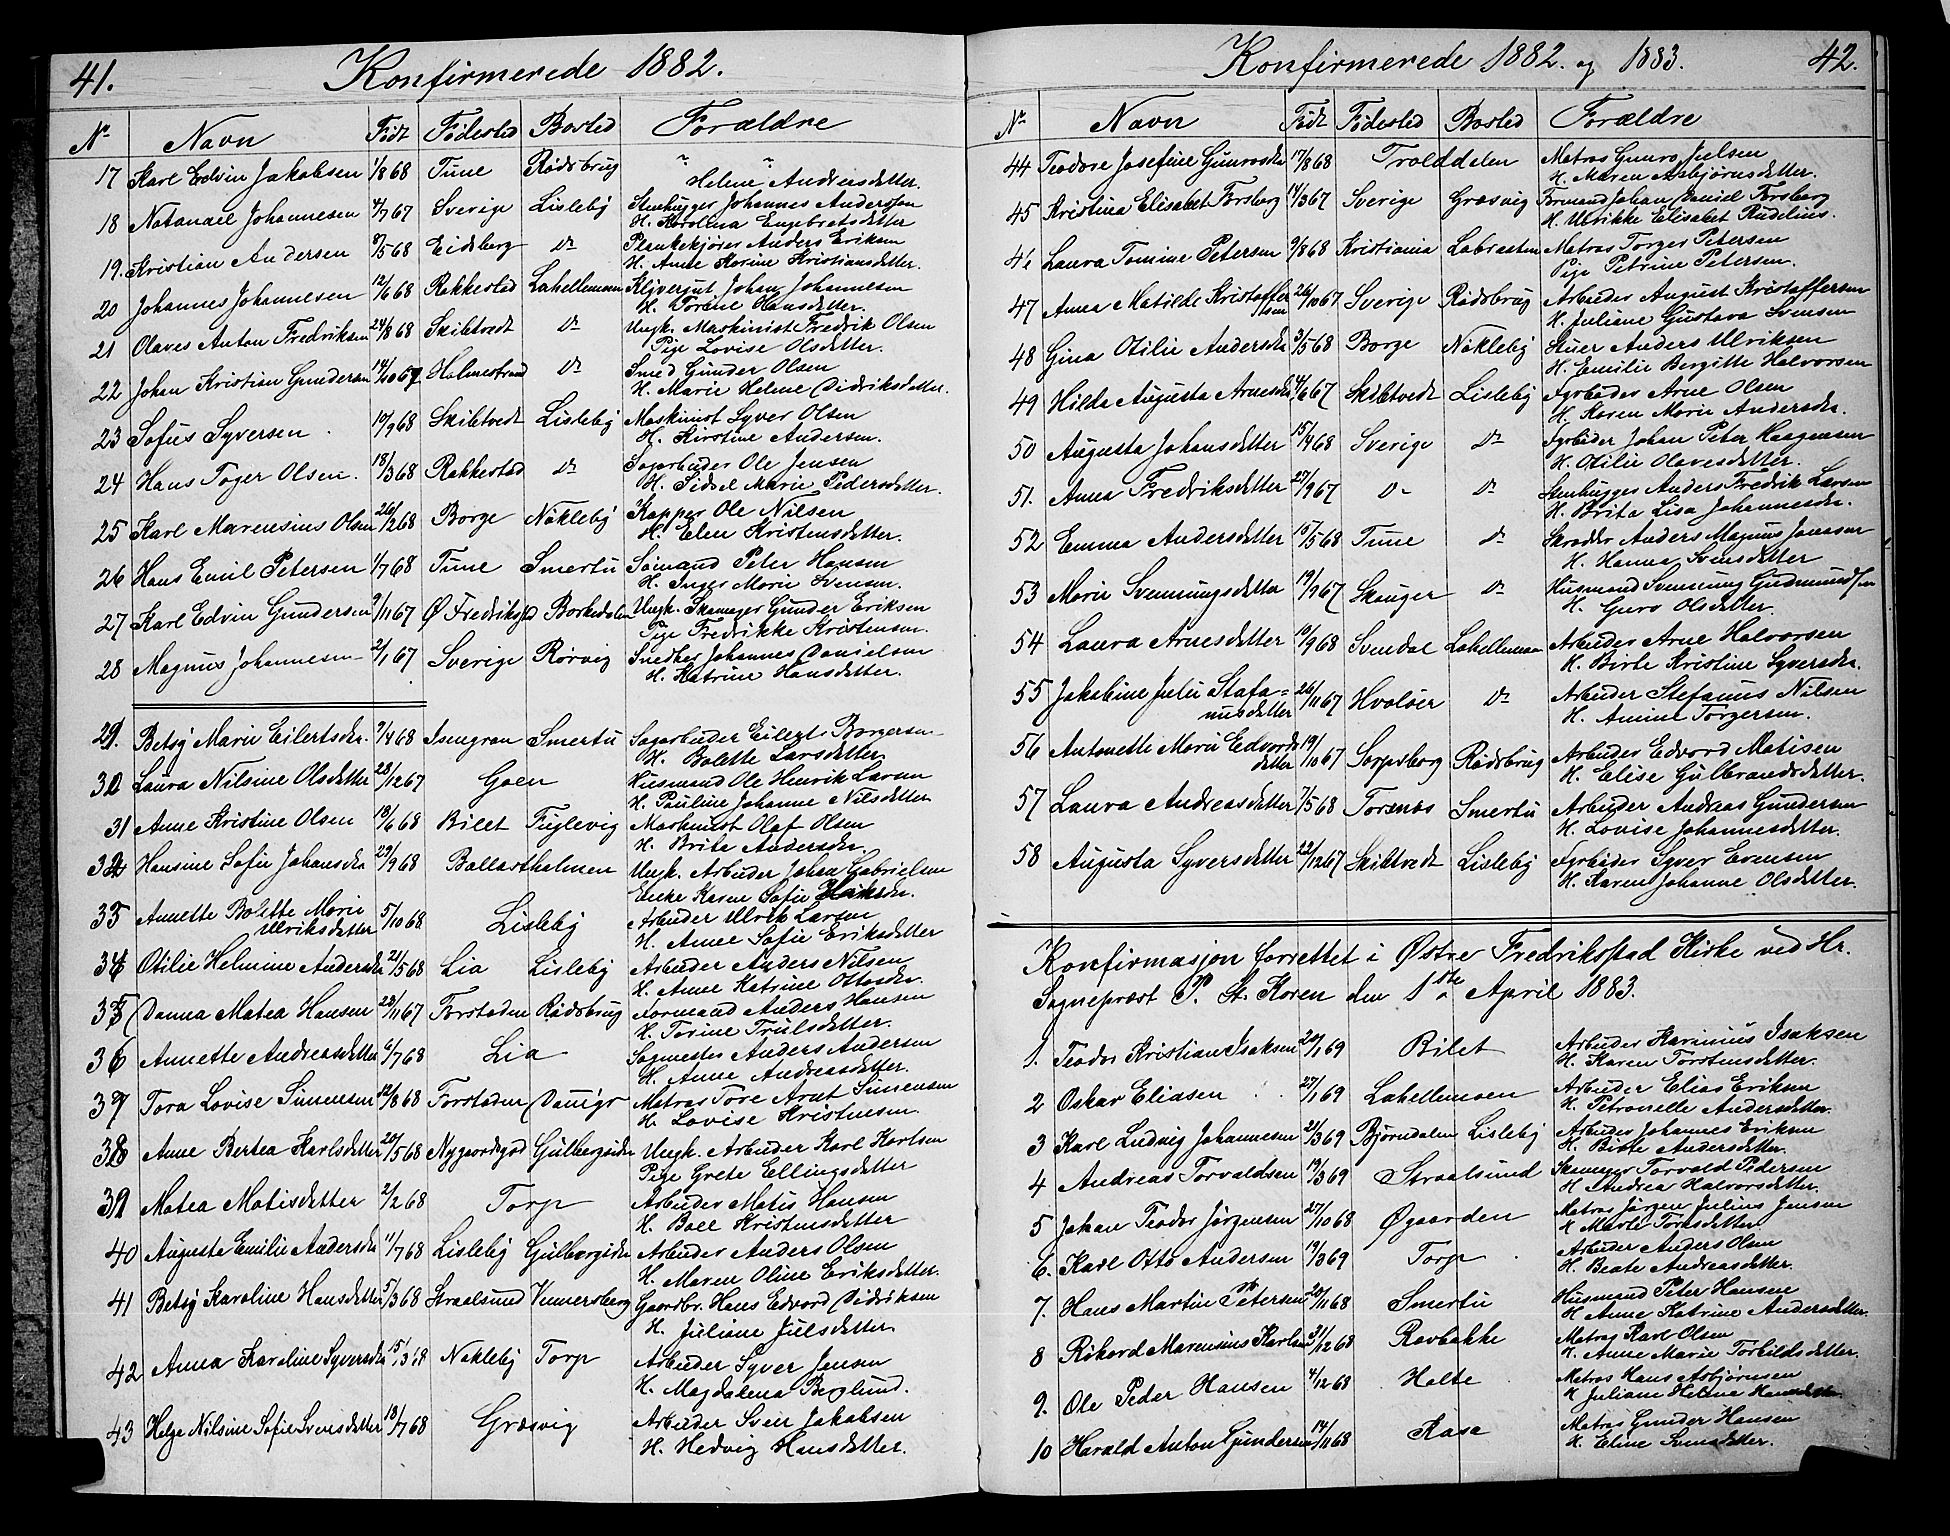 41. Konfirmerede 1882.
No Navn Født Fødested Bosted Forældre
17 Karl Edvin Jakobsen 1/8 68 Tune Rødsbrug " "
Helene Andersdetter.
18 Natanael Johannesen 4/7 67 Sverige Lisleby Stenhugger Johannes Andersson
H. Karolina Engebretsdetter
19. Kristian Andersen 9/5 68 Eidsberg do Plankekjører Anders Eriksen
H. Anne Karine Kristiansdetter.
20 Johannes Johannesen 12/6 68 Rakkestad Lahellemoen Johan Johannesen
H. Torine Hansdetter.
21 Olaves Anton Fredriksen 24/8 68 Skibtvedt do Ungk. Maskinist Fredrik Olsen
Pige Lovise Olsdetter.
22 Johan Kristian Gundersen 14/10 67 Holmestrand do Smed Gunder Olsen
H. Marie Helene Didriksdetter.
23 Sofus Syversen. 10/9 68 Skibtvedt Lisleby Maskinist Syver Olsen
H. Kirstine Andersen.
24 Hans Toger Olsen. 18/3 68 Rakkestad do Sagarbeider Ole Jensen
H. Sidsel Marie Pedersdetter.
25 Karl Marensius Olsen 26/2 68 Borge Nökleby Kapper Ole Nilsen
H. Elen Kristensdetter.
26 Hans Emil Petersen 1/7 68 Tune Smertu Sömand Peter Hansen
H. Inger Marie Svensen.
27 Karl Edvin Gundersen 9/11 67 Ø Fredriksstad Borkedalen Ungk. Skomager Gunder Eriksen
Pige Fredrikke Kristensen.
28 Magnus Johannesen 2/1 67 Sverige Rörvig Snedker Johannes Danielsen
H. Katrine Hansdetter.
29. Betsy Marie Eilertsdr. 7/4 68 Isengran Smertu Sagarbeider Eilert Borgersen
H. Bolette Larsdetter
30 Laura Nilsine Olsdetter 28/12 67 Goen Husmand Ole Henrik Larsen
H. Pauline Johanne Nilsdetter
31 Anne Kristine Olsen 13/6 68 Bilet Fuglevig Maskinist Olaf Olsen
H. Brite Andersdr.
32 Hansine Sofie Johansdr 29/9 68 Ballastholmen Ungk. Arbeider Johan Gabrielsen
Enke Karen Sofie
33 Annette Bolette Marie 5/10 68 Lisleby Arbeider Ulrik Larsen
Ulriksdetter H. Anne Sofie Eriksdetter
34 Otilie Helmine Andersdr 21/5 68 Lia Lisleby Arbeider Anders Nilsen
H. Anne Katrine Ottosdr.
35 Danna Matea Hansen 28/11 67 Forstaden Rødsbrug Formand Anders Hansen
H. Torine Trulsdetter.
36 Annette Andreasdetter 6/7 68 Lia Sagmester Anders Andersen
H. Anne Andreasdetter.
37 Tora Lovise Simensen 12/8 68 Forstaden Matros Tore Arnt Simensen
H. Lovise Kristensen.
38 Anne Bertea Karlsdetter 20/5 68 Nygaardsgad Gulbergsiden Ungk. Arbeider Karl Karlsen
Pige Grete Ellingsdetter
39 Matea Matisdetter 2/2 68 Torp Arbeider Matis Hansen
H. Boel Kristensdetter
40 Auguste Emilie Andersdr 11/7 68 Lisleby Gulbergsiden Arbeider Anders Olsen
H. Maren Oline Eriksdetter.
41 Betsy Karoline Hansdetter 5/3 68 Straalsund Vennersberg Gaardbr. Hans Edvard Didriksen
H. Juliane Julsdetter
42 Anna Karoline Syversdr 15/3 68 Nökleby Torp Arbeider Syver Jensen
H. Magdalena Berglund.
43 Helga Nilsine Sofie Svensdetter 18/7 68 Græsvig Arbeider Svein Jakobsen
H. Hedvig Hansdetter.
Konfirmerede 1882. og 1883. 42.
No Navn Født Fødested Bosted Forældre
44 Teodore Josefine Gunrosdr 17/8 68 Trolddalen Matros Gunro Julsen
H. Maren Asbjørnsdetter.
45 Kristina Elisabet Forsberg 14/3 67 Sverige Græsvig Formand Johan Daniel Forsberg
H. Ulrikke Elisabet Rudelius.
46 Laura Tomine Petersen 9/8 68 Kristiania Labraaten Matros Torger Petersen
Pige Petrine Petersen.
47 Anna Matilde Kristoffer 26/10 67 Sverige Rødsbrug Arbeider August Kristoffersen
sen H. Juliane Gustava Svensen
48 Gina Otilie Andersdr 3/5 68 Borge Nökleby Stuer Anders Ulriksen
H. Emilie Bergitte Halvorsen
49 Hilda Augusta Arnesdr 14/6 67 Skibtvedt Lisleby Fyrbøder Arne Olsen
H. Karen Marie Andersdr.
50 Augusta Johansdetter 15/4 68 Sverige do Fyrbøder Johan Peter Haagensen
H. Otilie Olavesdetter.
51. Anna Fredriksdetter 27/9 67 do do Stenhugger Anders Fredrik Larsen
H. Brita Lisa Johannesdr.
52 Emma Andersdetter 10/5 68 Tune do Skrædder Anders Magnus Jonassen
H. Hanna Svensdetter
53 Marie Svenningsdetter 19/9 67 Skouger do Husmand Svenning Gudmundsen
H. Guro Olsdetter.
54 Laura Arnesdetter 10/9 68 Svendal Lahellemoen Arbeider Arne Halvorsen
H. Birte Kristine Syversdr.
55 Jakobine Julie Stefa= 26/11 67 Hvaløer do Arbeider Stefanus Nilsen
nusdetter H. Amine Torgersen.
56 Antonette Marie Edvards 19/10 67 Sarpsborg Rødsbrug Arbeider Edvard Matisen
detter H. Elise Gulbrandsdetter.
57 Laura Andreasdetter 7/5 68 Torsnæs Smertu Arbeider Andreas Gundersen
H. Lovise Johannesdetter.
58 Augusta Syversdetter 22/12 67 Skibtvedt Lisleby Fyrbøder Syver Evensen
H. Karen Johanne Olsdetter.
Konfirmasjon forrettet i Østre Fredriksstad Kirke ved Hr.
Sognepræst P. St. Koren den 1ste April 1883.
1. Teodor Kristian Isaksen 20/1 69 Bilet Arbeider Karinius Isaksen
H. Karen Torstensdetter.
2 Oskar Eliasen 27/1 69 Lahellemoen Arbeider Elias Eriksen
H. Petronelle Andersdetter.
3 Karl Ludvig Johannesen 21/3 69 Bjørndalen Lisleby Arbeider Johannes Eriksen
H. Birte Andersdetter.
4 Andreas Torvaldsen 19/3 69 Straalsund Skomager Torvald Pedersen
H Andrea Halvorsdetter.
5 Johan Teodor Jørgensen 27/10 68 Øgaarden Matros Jørgen Julius Jensen
H Marte Toresdetter.
6. Karl Otto Andersen 19/3 69 Torp Arbeider Anders Olsen
H. Beate Andreasdetter.
7. Hans Martin Petersen 20/11 68 Smertu Husmand Peter Hansen
H Anne Katrine Andersdetter.
8 Rikard Marensius Karlsen 31/12 68 Ravbakke Matros Karl Olsen
H. Anne Marie Torbildsdetter.
9. Ole Peder Hansen 4/12 68 Holte Matros Hans Asbjørnsen
H Juliane Helene
10 Harald Anton Gundersen 14/11 68 Kasa Matros Gunder Hansen
H. Eline Svensdetter.